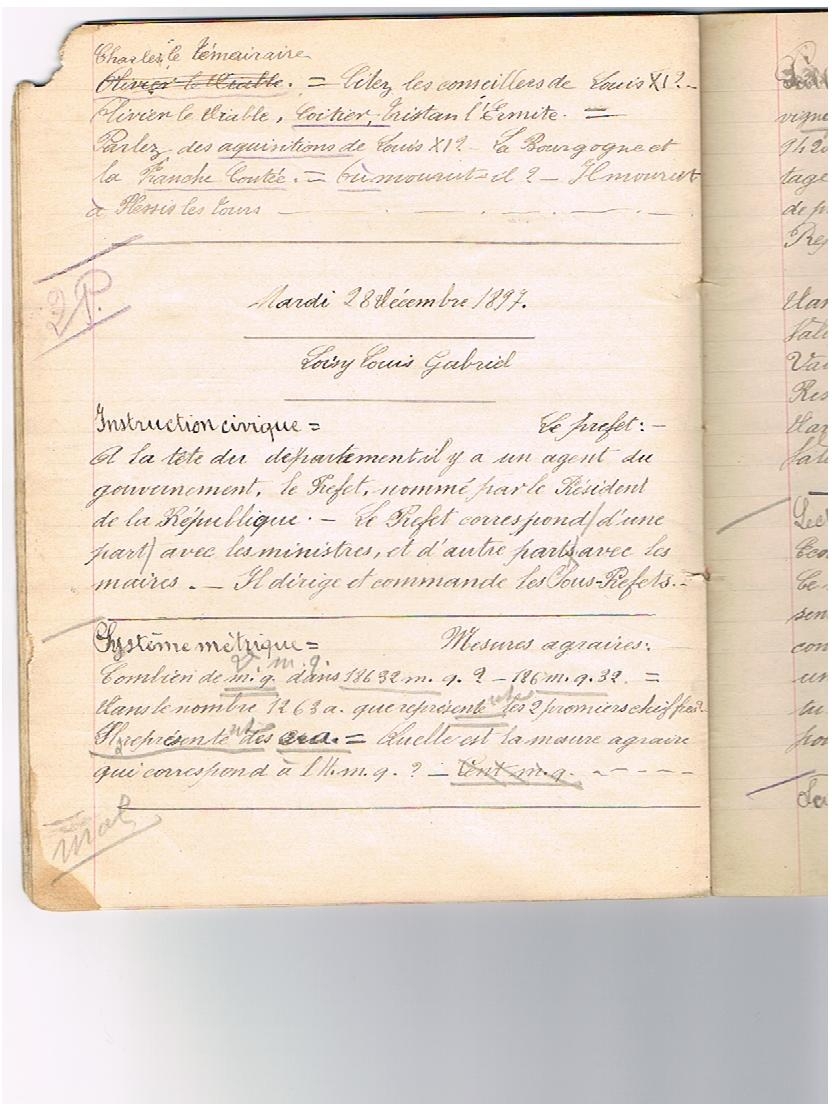 Charles le Témairaire
Olivier le Diable. = Citez les conseillers de Louis XI? -
Olivier le Diable, Coitier, Tristan l'Ermite. =
Parlez des aquisitions de Louis XI? - La Bourgogne et
la Franche Coutée. = Où mourut-il? - Il mourut
à Plessis les Tours
2 P.
Mardi 28 Décembre 1897.
Loisy Louis Gabriel
Instruction civique = Le prefet: -
A la tête du département il y a un agent du
gouvernement, le Prefet, nommé par le Président
de la République. - Le Prefet correspond d'une
part avec les ministres, et d'autre part avec les
maires. - Il dirige et commande les Sous-Prefets. -
Système métrique = Mesures agraires:
m. q.
Combien de m. q. dans 18632 m. q.? - 186 m. q. 32. =
Dans le nombre 1263 a. que représente les 2 premiers chiffres? -
Il représente des = Quelle est la mesure agraire
qui correspond à 1 H. m. q.? - Cent m. q. - - - -
mal